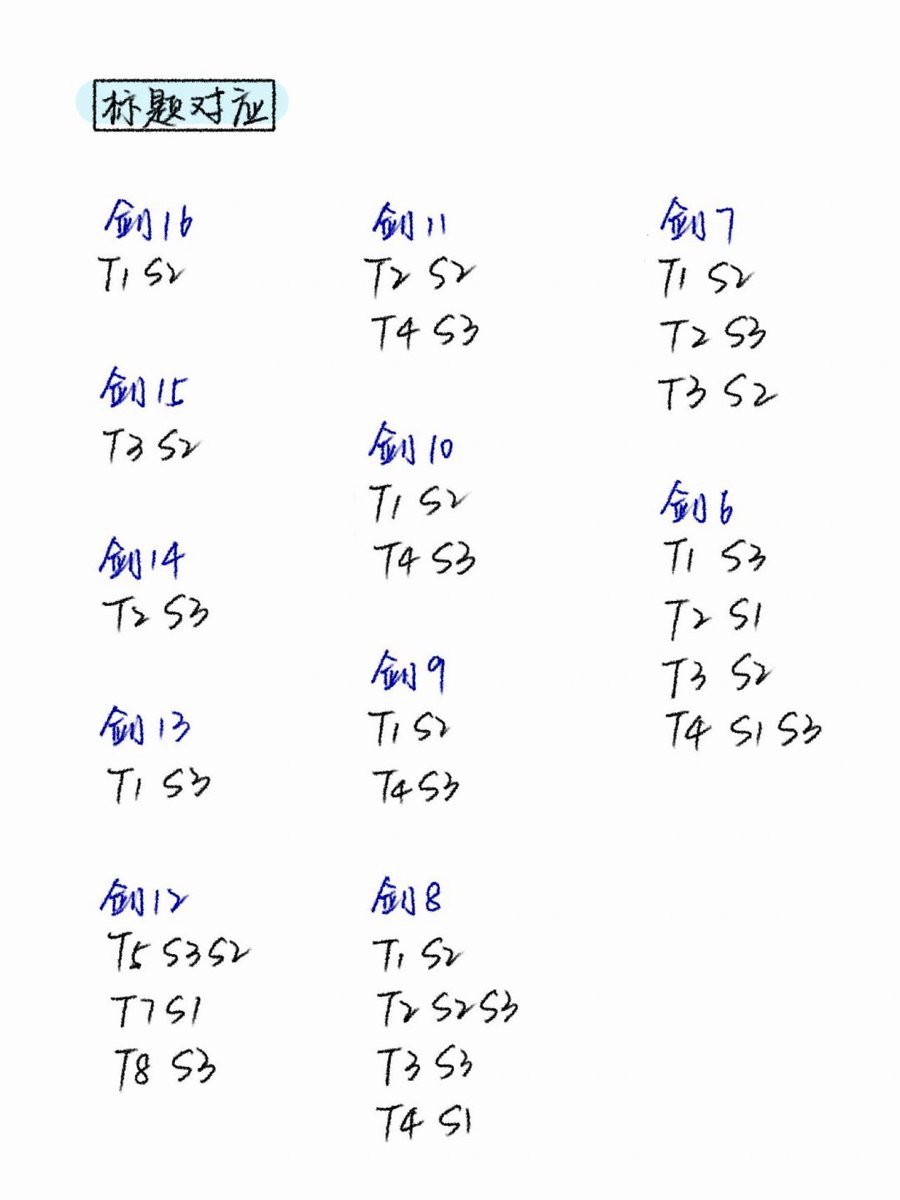 标题对应
剑16
T1 S2
剑15
T3 S2
剑14
T2 S3
剑13
T1 S3
剑12
T5 S3 S2
T7 S1
T8 S3
剑11
T2 S2
T4 S3
剑10
T1 S2
T4 S3
剑9
T1 S2
T4 S3
剑8
T1 S2
T2 S2 S3
T3 S3
T4 S1
剑7
T1 S2
T2 S3
T3 S2
剑6
T1 S3
T2 S1
T3 S2
T4 S1 S3